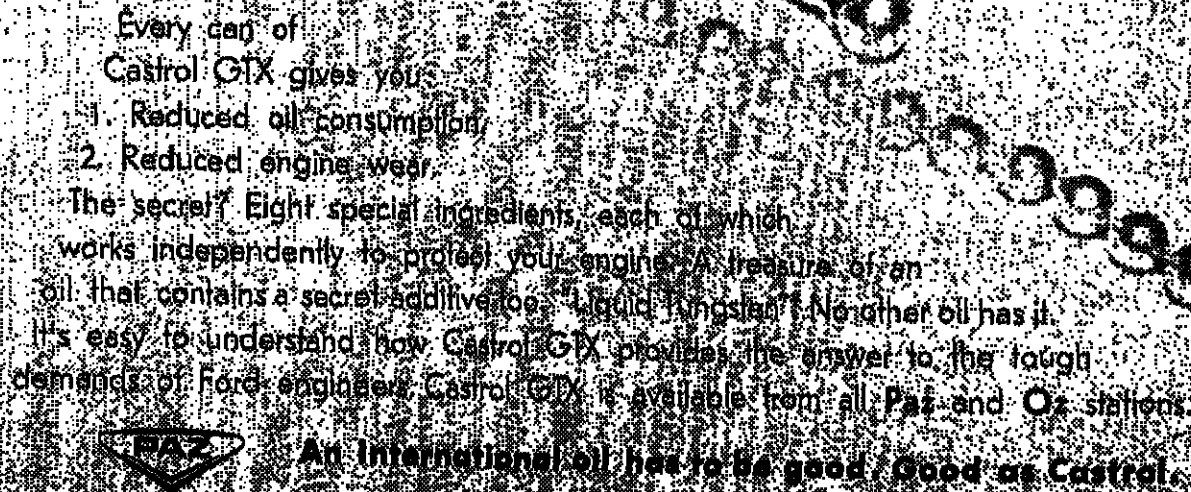 Every can of
Castrol GTX gives you:
1. Reduced oil consumption.
2. Reduced engine wear.
The secret? Eight special ingredients, each of which
works independently to protect your engine. A treasure of an
oil that contains a secret additive too. "Liquid Tungsten"! No other oil has it.
It's easy to understand how Castrol GTX provides the answer to the tough
demands of Ford engineers. Castrol GTX is available from all Paz and Oz stations.
PAZ
An International oil has to be good. Good as Castrol.